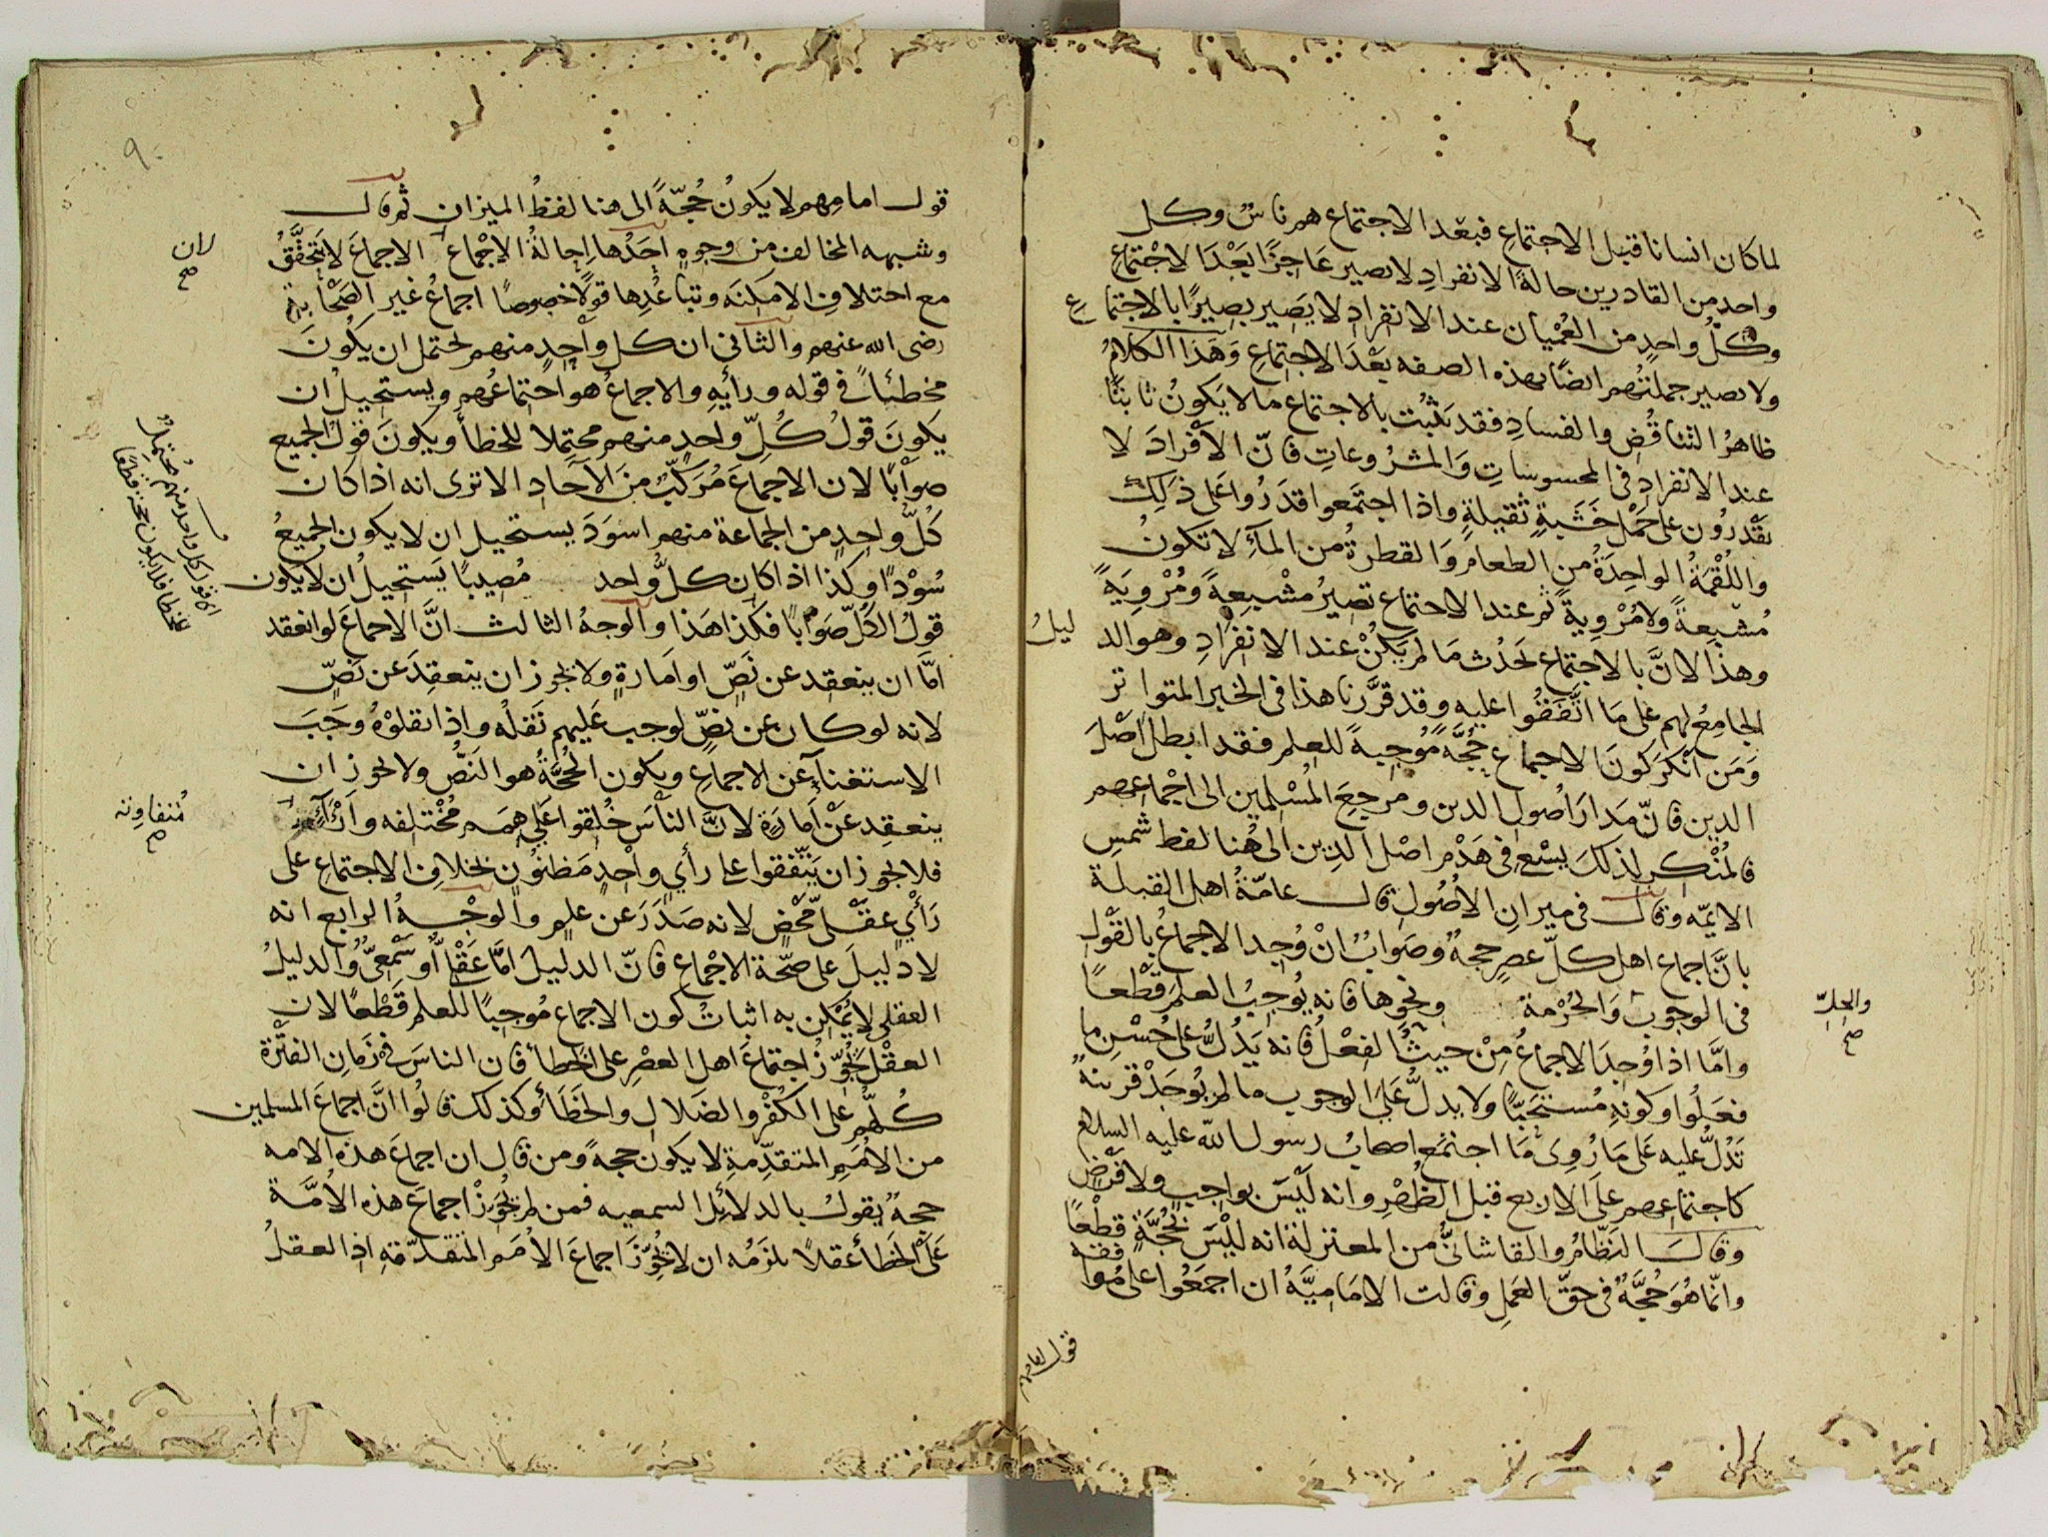 لما كان انسانا قبل الاجتماع فبعد الاجتماع هم ناس وكل
واحد من القادرين حالة الانفراد لا يصير عاجزا بعد الاجتماع
وكل واحد من العميان عند الانفراد لا يصير بصيرا بالاجتماع
ولا يصير جملتهم ايضا بهذه الصفه بعد الاجتماع وهذا الكلام
ظاهر التناقض والفساد فقد يثبت بالاجتماع ما لا يكون ثابتا
عند الانفراد في المحسوسات والمشروعات فان الافراد لا
يقدرون على حمل خشبة ثقيلة واذا اجتمعوا قدروا على ذلك
واللقمة الواحدة من الطعام والقطرة من الماء لا تكون
مشبعة ولا مروية ثم عند الاجتماع تصير مشبعة ومروية
وهذا لان بالاجتماع يحدث ما لم يكن عند الانفراد وهو الد ليل
الجامع لهم على ما اتفقوا عليه وقد قررنا هذا في الخبر المتواتر
ومن انكر كون الاجماع حجة موجبة للعلم فقد ابطل اصل
الدين فان مدار اصول الدين ومرجع المسلمين الى اجماعهم
فالمنكر لذلك يسع في هدم اصل الدين الى هنا لفظ شمس
الايمه وقال في ميزان الاصول قال عامة اهل القبلة
بان اجماع اهل كل عصر حجة وصواب ان وجد الاجماع بالقول
في الوجوب والحرمة ونحوها فانه يوجب العلم قطعا
والحل صح
واما اذا وجد الاجماع من حيث الفعل فانه يدل على حسن ما
فعلوا وكونه مستحبا ولا يدل على الوجوب ما لم يوجد قرينة
تدل عليه على ما روى ما اجتمع اصحاب رسول الله عليه السلام
كاجتماعهم على الاربع قبل الظهر وانه ليس بواجب ولا فرض
وقال النظام والقاشاني من المعتزلة انه ليس بحجة قطعا
وانما هو حجة في حق العمل وقالت الامامية ان اجمعوا على موافقه
قول امامهم
٩٠
قول امامهم لا يكون حجة الى هنا لفظ الميزان ثم قال
وشبهه المخالف من وجوه احدها احالة الاجماع الاجماع لا يتحقق
لان صح
مع اختلاف الامكنه وتباعدها قولا خصوصا اجماع غير الصحابة
رضى الله عنهم والثاني ان كل واحد منهم يحتمل ان يكون
مخطئا في قوله ورأيه والاجماع هو اجتماعهم ويستحيل ان
يكون قول كل واحد منهم محتملا للخطأ ويكون قول الجميع
صوابا لان الاجماع مركب من الآحاد الا ترى انه اذا كان
كل واحد من الجماعة منهم اسود يستحيل ان لا يكون الجميع
سودا وكذا اذا كان كل واحد مصيبا يستحيل ان لا يكون
اذا قول كل واحد منهم محتمل
غلطا فلا يكون حجة قطعا
قول الكل صوابا فكذا هذا والوجه الثالث ان الاجماع لو انعقد
اما ان ينعقد عن نص او امارة ولا يجوز ان ينعقد عن نص
لانه لو كان عن نص لوجب عليهم نقله واذا نقلوه وجب
الاستغناء عن الاجماع ويكون الحجة هو النص ولا يجوز ان
ينعقد عن امارة لان الناس خلقوا على همم مختلفه وآراء
متفاوته صح
فلا يجوز ان يتفقوا على رأي واحد مظنون بخلاف الاجتماع على
رأي عقلي محض لانه صدر عن علم والوجه الرابع انه
لا دليل على صحة الاجماع فان الدليل اما عقلي او سمعي والدليل
العقلي لا يمكن به اثبات كون الاجماع موجبا للعلم قطعا لان
العقل يجوز اجتماع اهل العصر على الخطأ فان الناس في زمان الفترة
كلهم على الكفر والضلال والخطأ وكذلك قالوا ان اجماع المسلمين
من الامم المتقدمة لا يكون حجة ومن قال ان اجماع هذه الامه
حجة يقول بالدلائل السمعيه فمن لم يجوز اجماع هذه الامة
على الخطأ عقلا يلزمه ان لا يجوز اجماع الامم المتقدمة اذ العقل